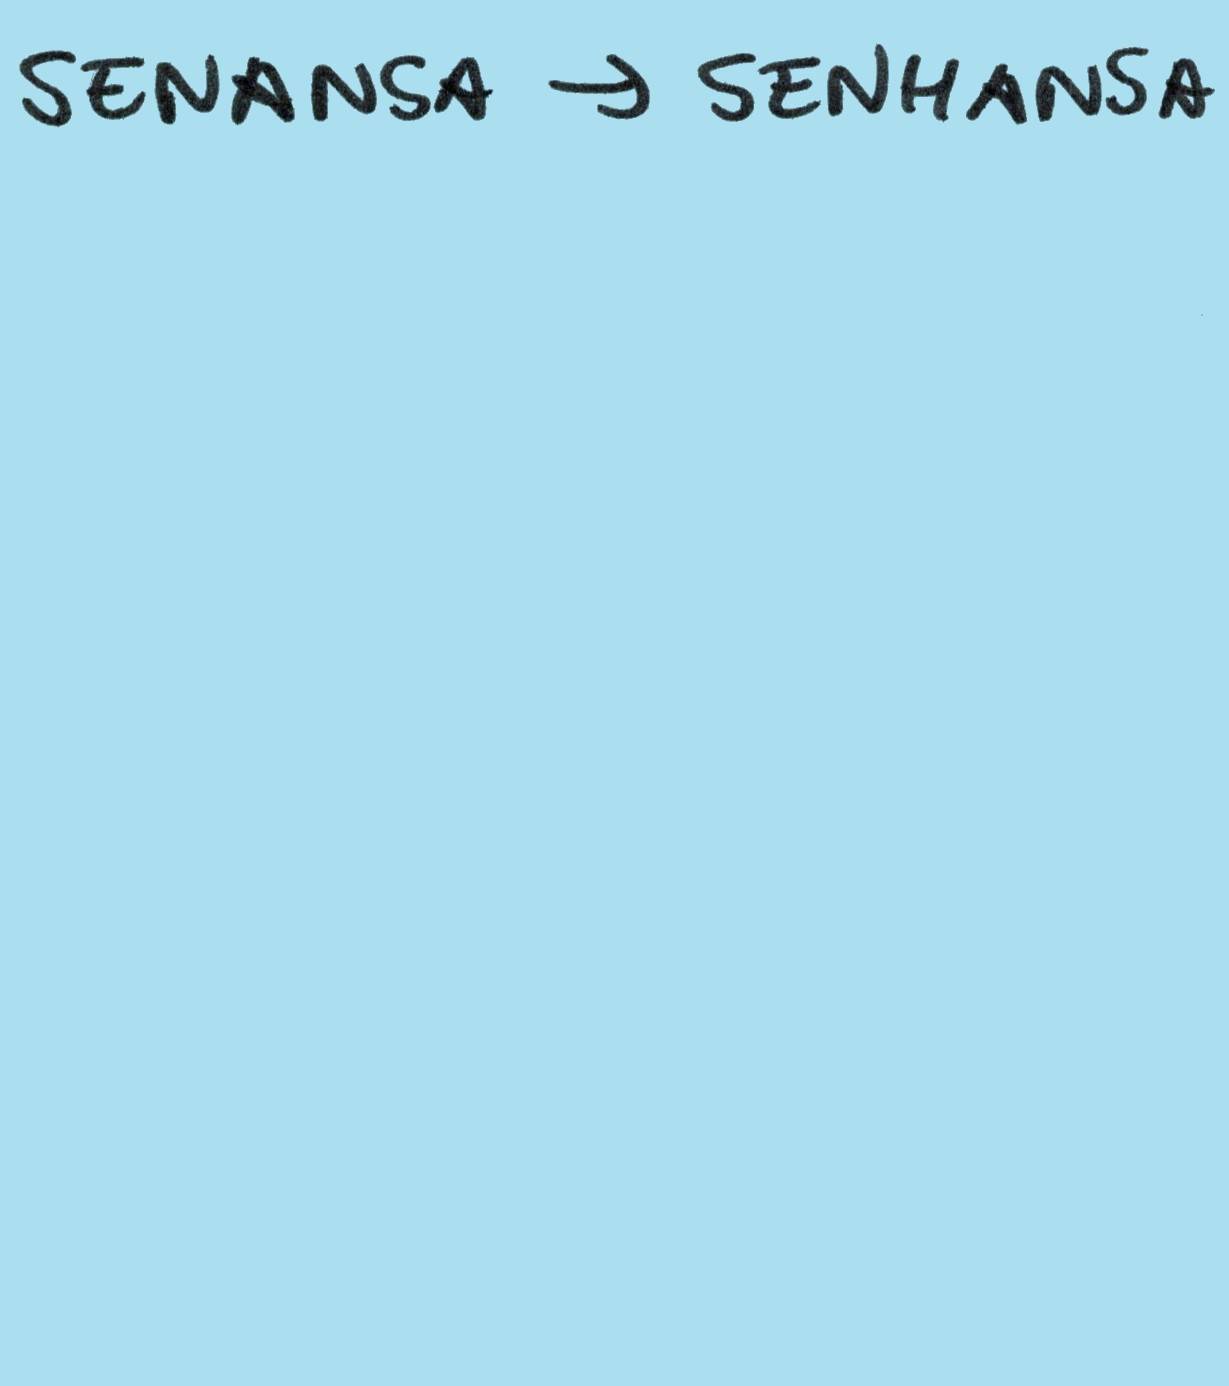 SENANSA → SENHANSA